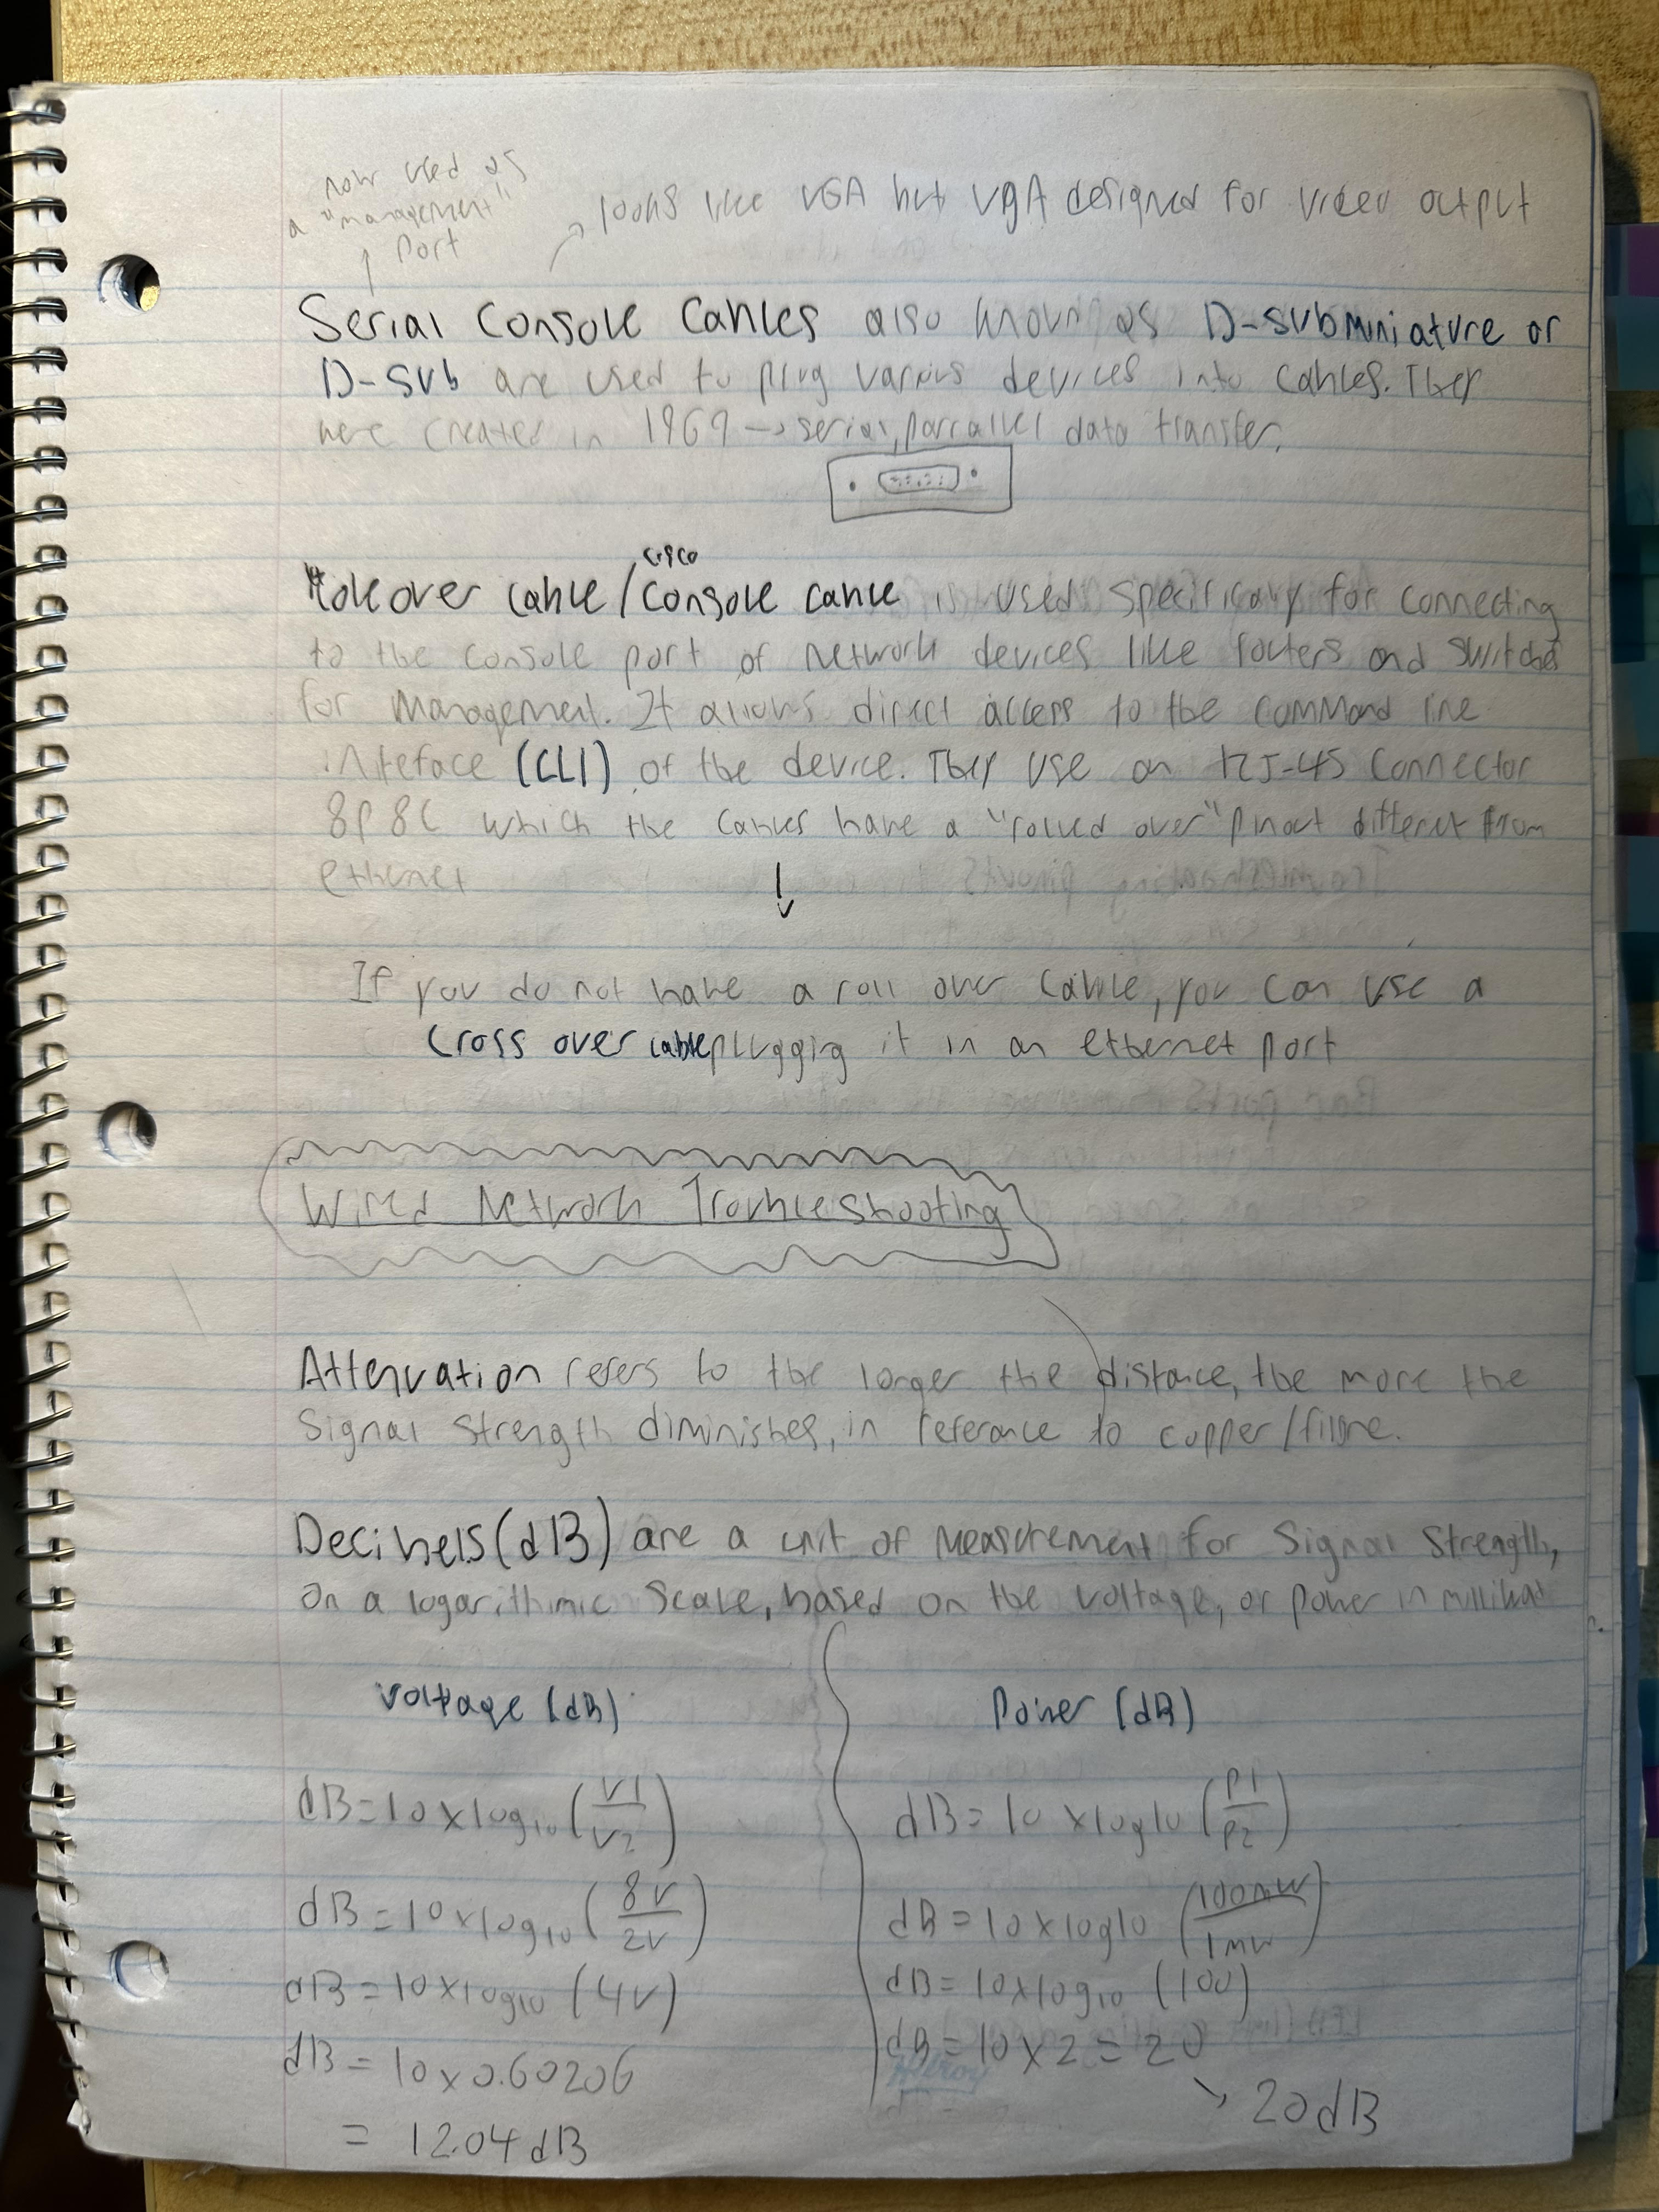 now used as
a "management"
port
looks like VGA but VGA designed for video output
Serial Console Cables also known as D-subminiature or
D-sub are used to plug various devices into cables. They
were created in 1969 → serial, parrallel data transfer.
cisco
Rollover cable/Console cable is used specifically for connecting
to the console port of network devices like routers and switches
for management. It allows direct access to the command line
inteface (CLI) of the device. They use an RJ-45 Connector
8P8C which the cables have a "rolled over" pinout different from
ethernet
↓
If you do not have a roll over cable, you can use a
cross over cable plugging it in an ethernet port
Wired Network Troubleshooting
Attenuation refers to the longer the distance, the more the
Signal Strength diminishes, in reference to copper/fibre.
Decibels (dB) are a unit of measurement for Signal Strength,
on a logarithmic scale, based on the voltage, or power in milliwat
Voltage (dB)
dB = 10 x log10 (V1/V2)
dB = 10 x log10 (8V/2V)
dB = 10 x log10 (4V)
dB = 10 x 0.60206
= 12.04 dB
Power (dB)
dB = 10 x log10 (P1/P2)
dB = 10 x log10 (100mW/1mW)
dB = 10 x log10 (100)
dB = 10 x 2 = 20
20 dB